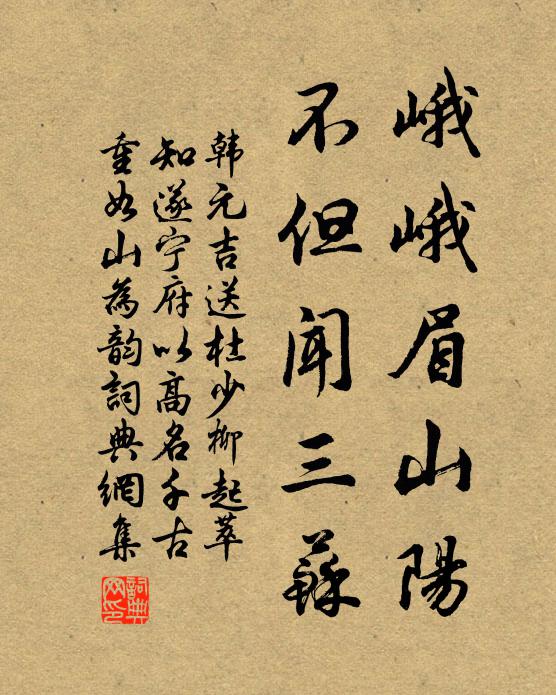 峨峨眉山陽
不但闻三蘇
韩元吉送杜少柳起萃
知遂宁府以高名千古
重如山為韵詞典網集
詞典网印